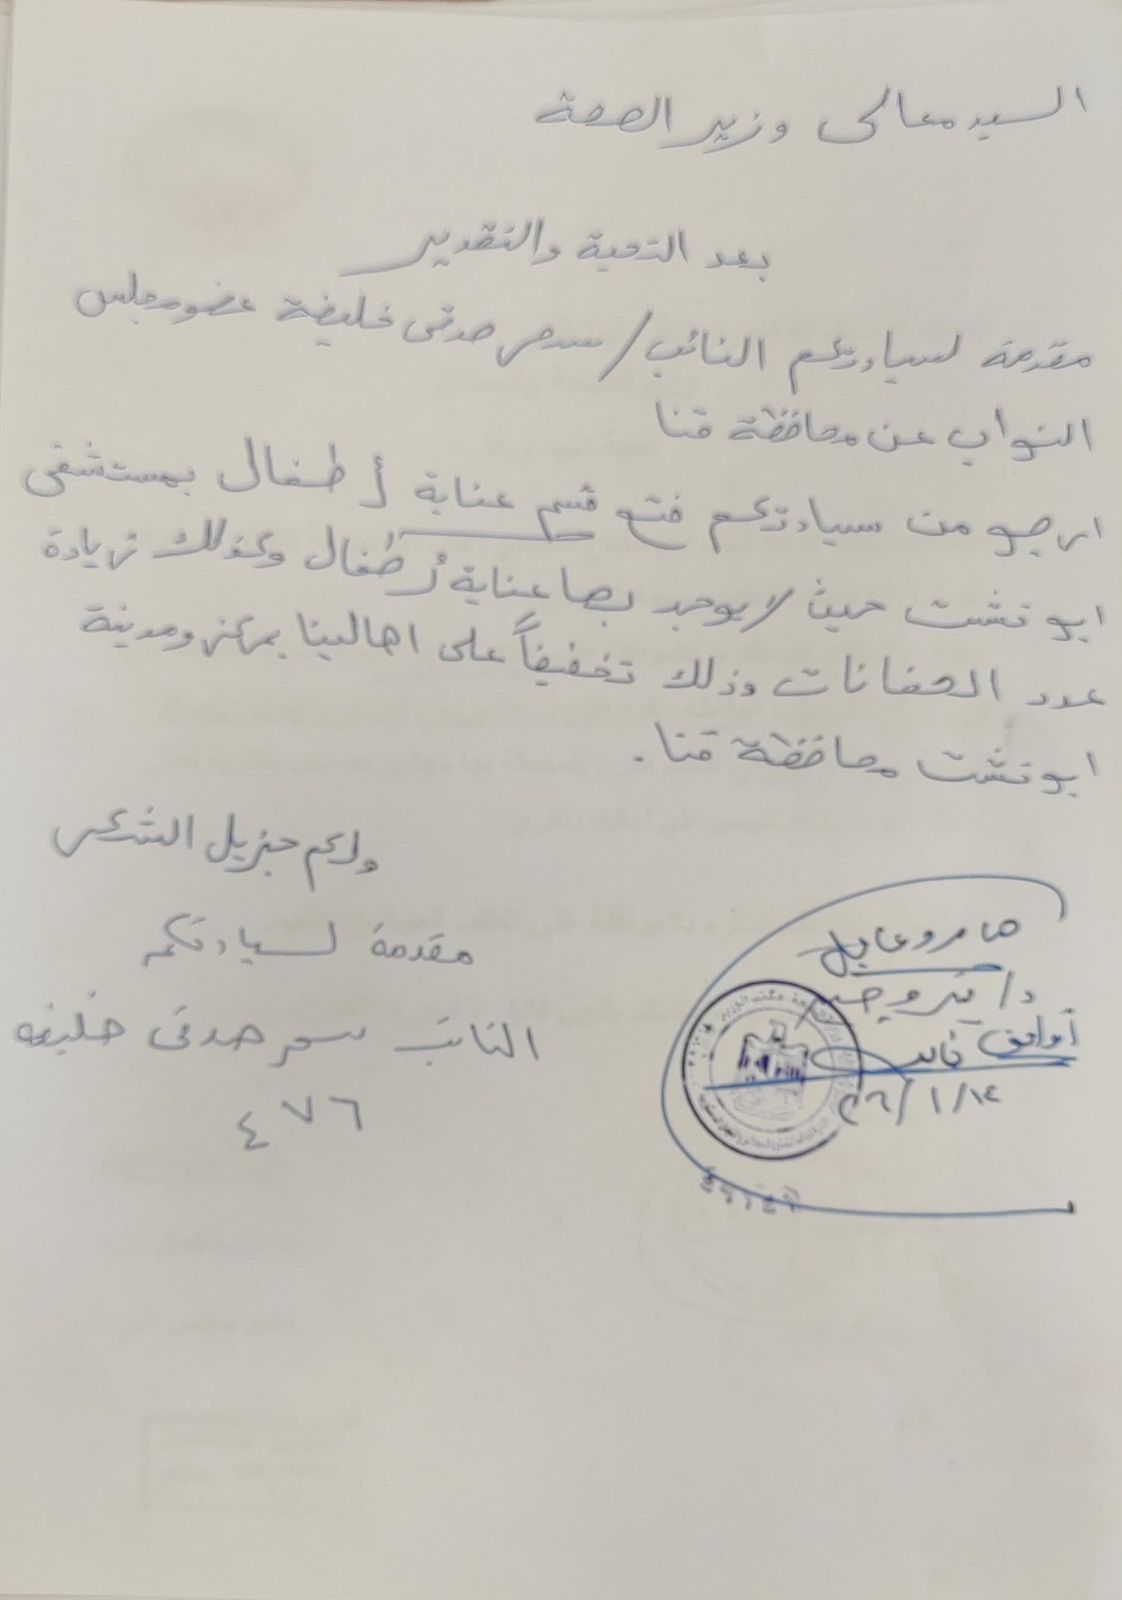 السيد معالى وزير الصحة
بعد التحية والتقدير
مقدمة لسيادتكم النائب / سحر صدقى خليفة عضو مجلس
النواب عن محافظة قنا
ارجو من سيادتكم فتح قسم عناية أطفال بمستشفى
ابو تشت حيث لا يوجد بها عناية أطفال وكذلك زيادة
عدد الحضانات وذلك تخفيفاً على اهالينا بمركز ومدينة
ابو تشت محافظة قنا.
ولكم جزيل الشكر
مقدمة لسيادتكم
النائب سحر صدقى خليفه
٤٧٦
هام وعاجل
أوافق
٢٦/١/١٤